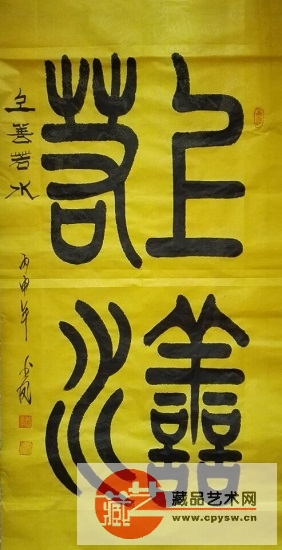 上善
若水
上善若水
丙申年
藏品艺术网
www.cpysw.cn